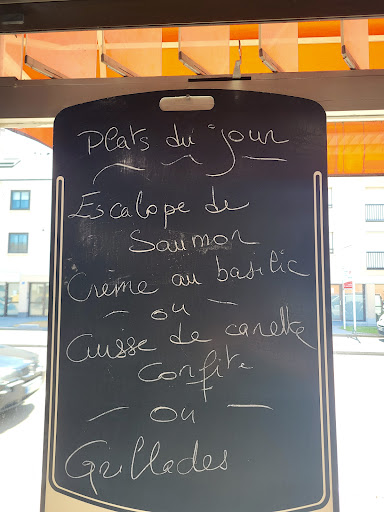 Plats du jour
Escalope de
Saumon
Crème au basilic
- ou -
Cuisse de canette
Confite
- ou -
Grillades